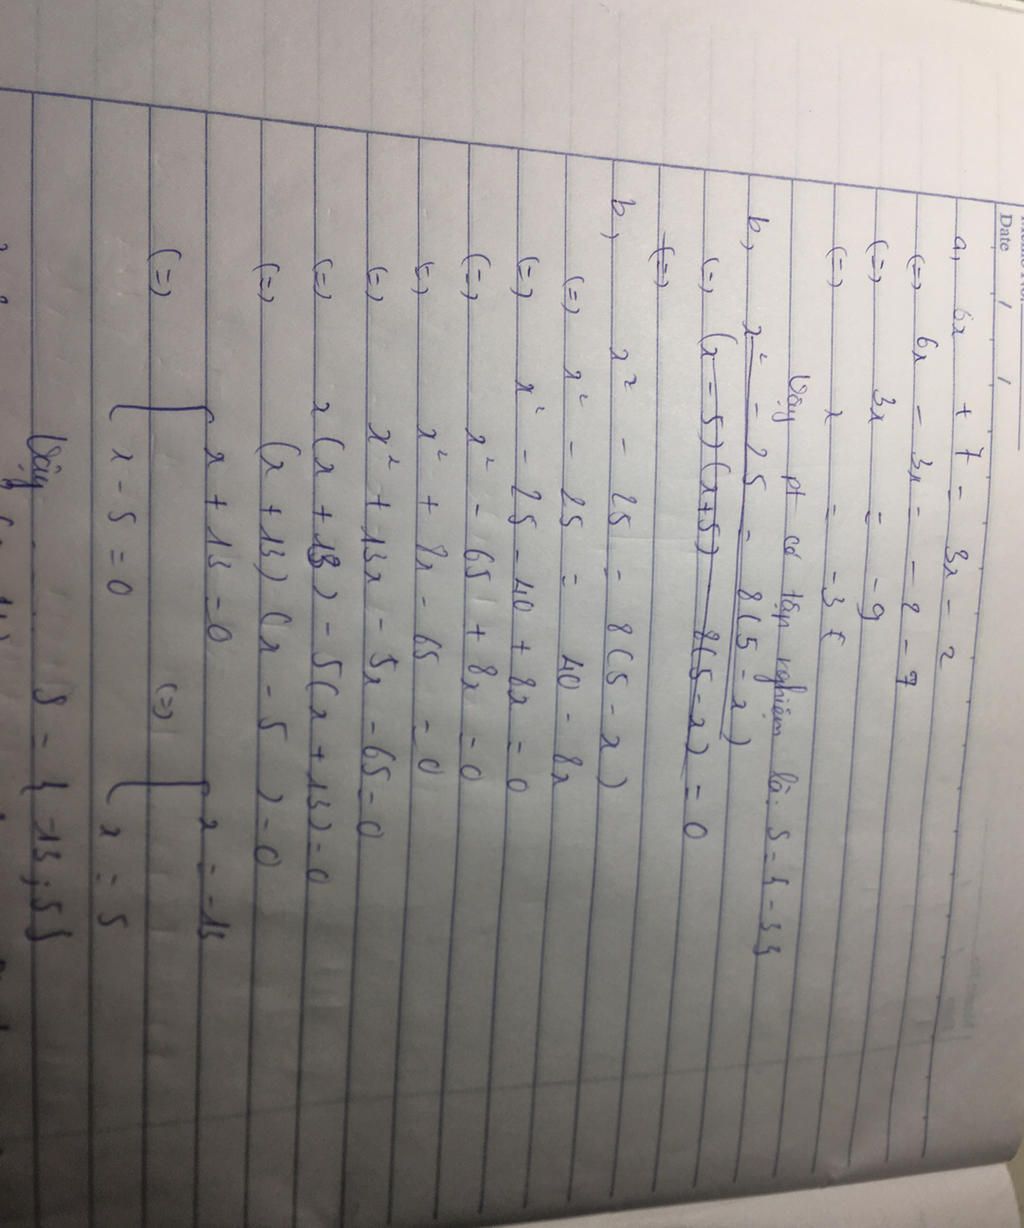 Date / /
a, 6x + 7 = 3x - 2
(=) 6x - 3x = - 2 - 7
(=) 3x = - 9
(=) x = - 3
Vậy pt có tập nghiệm là: S = {-3}
b, x² - 25 = 8(5 - x)
(=) (x - 5)(x+5) - 8(5 - x) = 0
(=)
b, x² - 25 = 8(5 - x)
(=) x² - 25 = 40 - 8x
(=) x² - 25 - 40 + 8x = 0
(=) x² - 65 + 8x = 0
(=) x² + 8x - 65 = 0
(=) x² + 13x - 5x - 65 = 0
(=) x(x + 13) - 5(x + 13) = 0
(=) (x + 13)(x - 5) = 0
(=) [ x + 13 = 0 (=) [ x = -13
x - 5 = 0 x = 5
Vậy ..... S = {-13; 5}